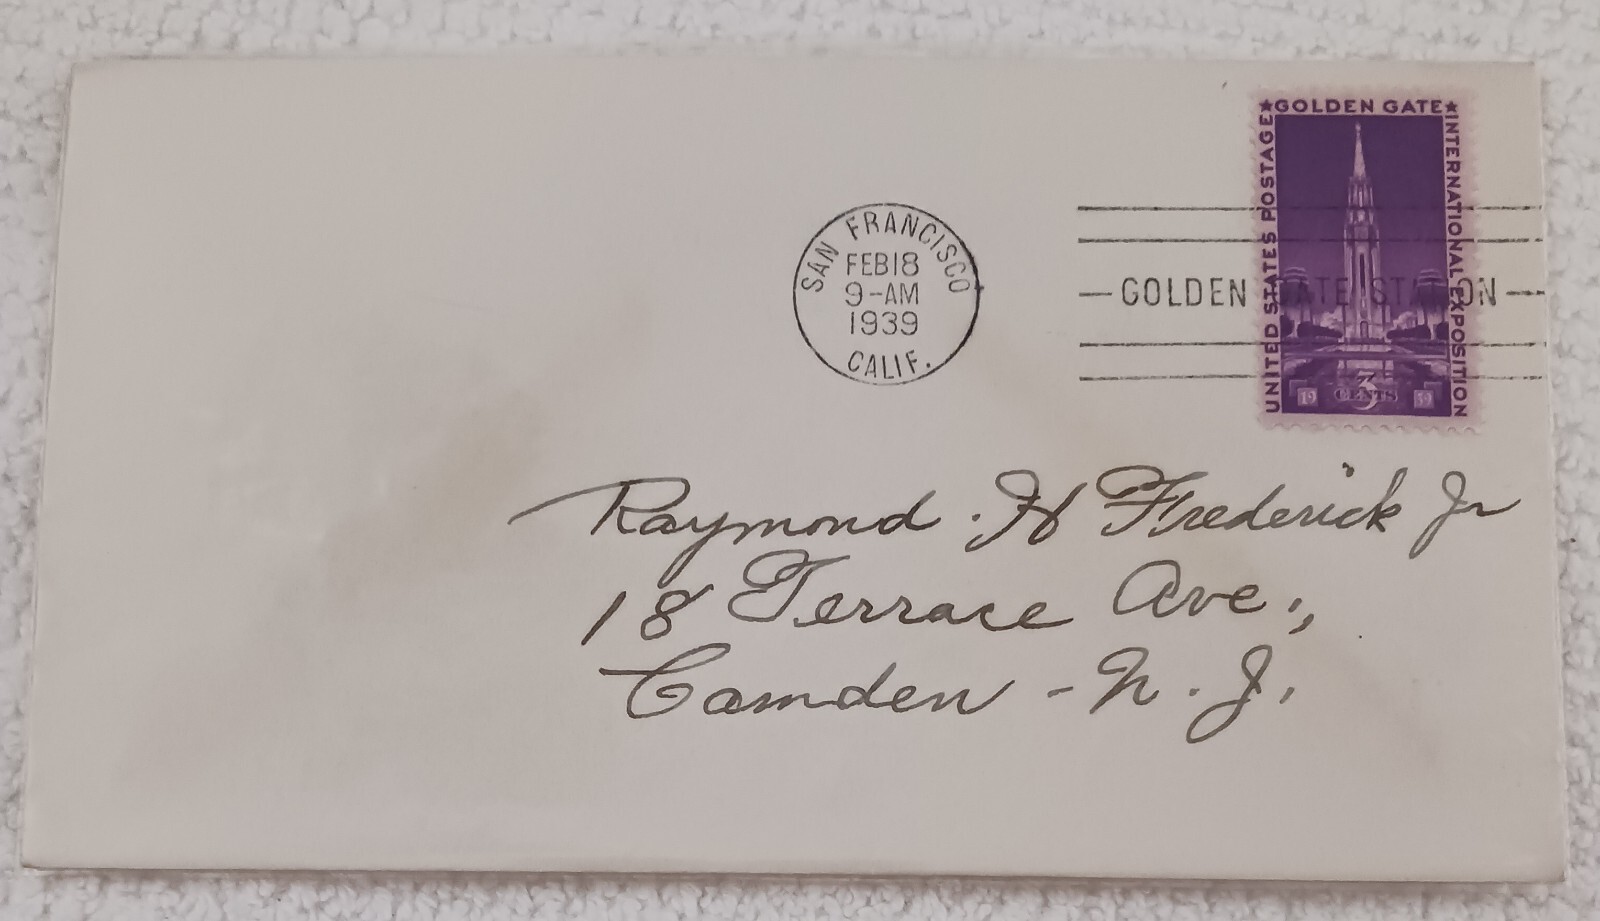 ★GOLDEN GATE★
UNITED STATES POSTAGE
INTERNATIONAL EXPOSITION
3
CENTS
19 39
SAN FRANCISCO
FEB 18
9-AM
1939
CALIF.
GOLDEN GATE STATION
Raymond . H Frederick Jr
18 Terrace Ave.,
Camden - N. J.